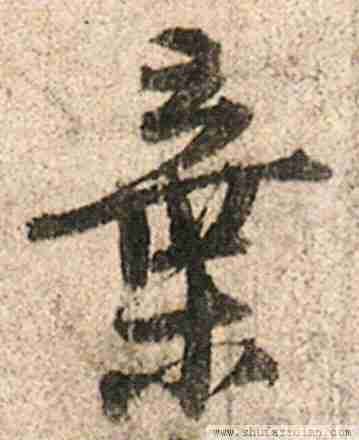 棄
www.shufazidian.com